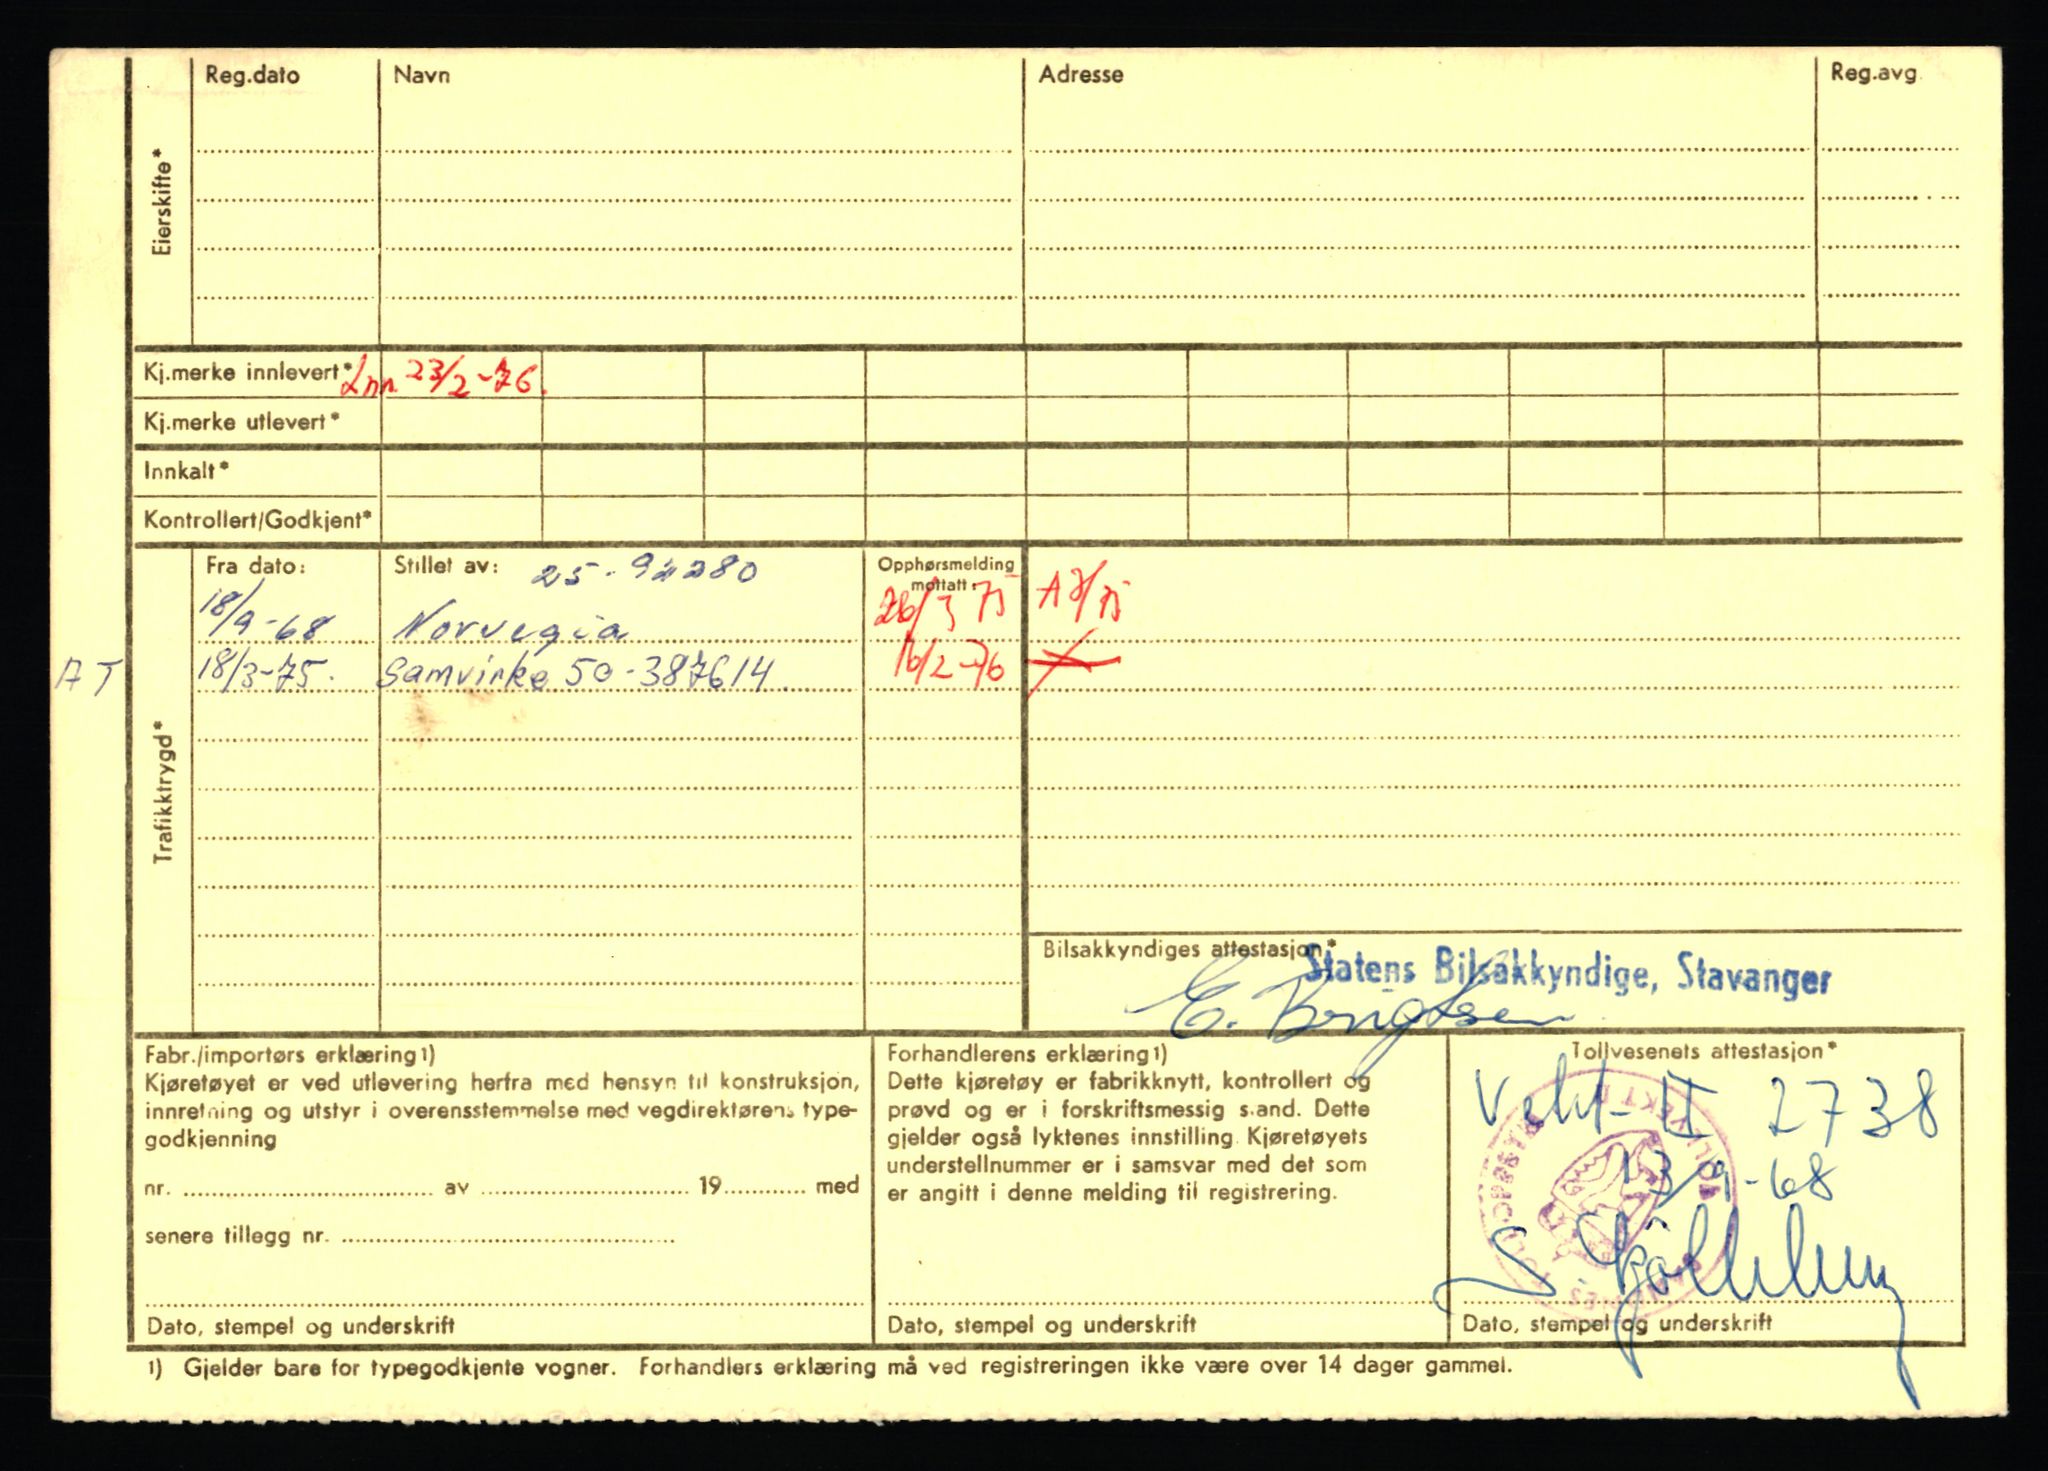 Reg.dato Navn Adresse Reg.avg.
Eierskifte*
Kj.merke innlevert* Inn. 23/2-76.
Kj.merke utlevert*
Innkalt*
Kontrollert/Godkjent*
Trafikktrygd*
Fra dato: Stillet av: 25-94280 Opphørsmelding mottatt:
18/9-68 Norvegia 26/3 75 A 7/75
AT 18/3-75. Samvirke 50-387614. 16/2-76
Bilsakkyndiges attestasjon*
Statens Bilsakkyndige, Stavanger
Fabr./importørs erklæring 1)
Kjøretøyet er ved utlevering herfra med hensyn til konstruksjon,
innretning og utstyr i overensstemmelse med vegdirektørens type-
godkjenning
nr. av 19 med
senere tillegg nr.
Dato, stempel og underskrift
Forhandlerens erklæring 1)
Dette kjøretøy er fabrikknytt, kontrollert og
prøvd og er i forskriftsmessig stand. Dette
gjelder også lyktenes innstilling. Kjøretøyets
understellnummer er i samsvar med det som
er angitt i denne melding til registrering.
Dato, stempel og underskrift
Tollvesenets attestasjon*
II 2738
13/9-68
Dato, stempel og underskrift
1) Gjelder bare for typegodkjente vogner. Forhandlers erklæring må ved registreringen ikke være over 14 dager gammel.